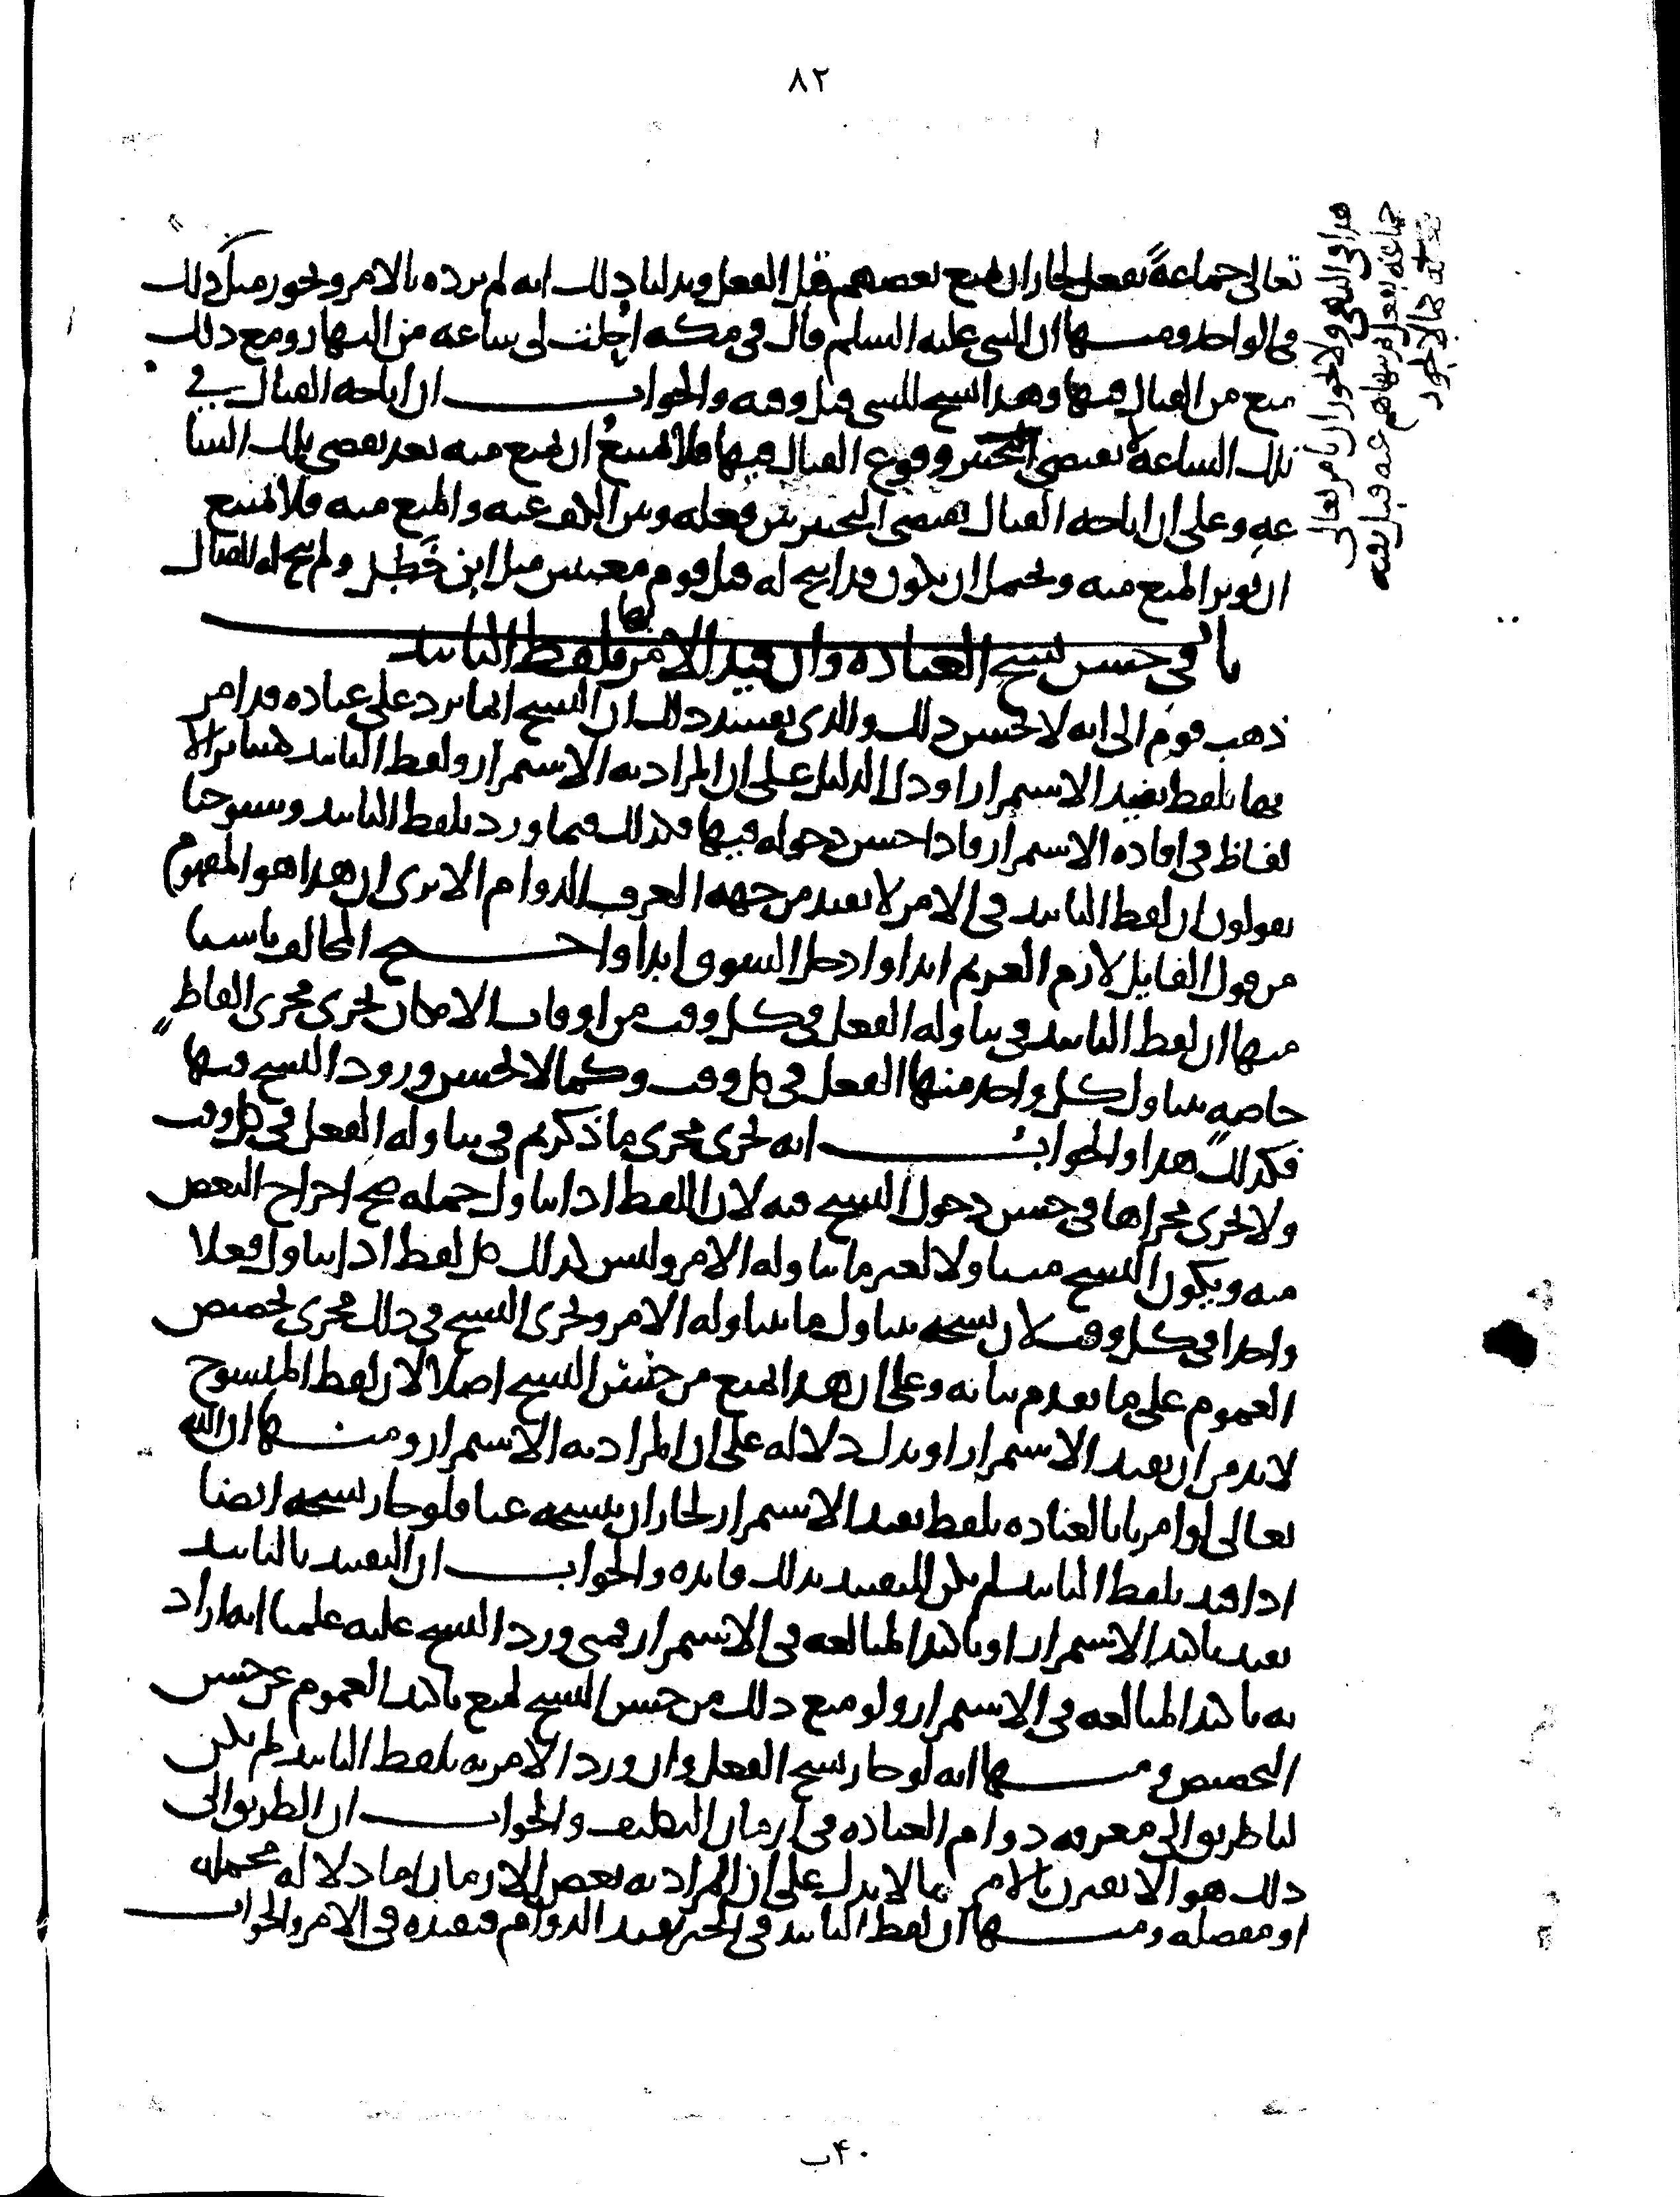 ٨٢
تعالى جماعةً بفعل لجاز ان يمنع بعضهم قبل الفعل ويدلنا ذلك انه لم يرده بالامر ويجوز مثل ذلك
في الواحد ومنها ان النبي عليه السلم قال في مكه اُحِلت لي ساعه من النهار ومع ذلك
منع من القتال فيها وهذا نسخ للشي قبل وقته والجواب ان اباحه القتال في
تلك الساعه لا تقتضي وقوع القتال فيها فلا يمتنعُ ان يمنع منه بعد تقضي تلك السا
عه وعلى ان اباحه القتال تقتضي التخيير بين فعله وبين الكف عنه والمنع منه فلا يمتنع
ان يوثر المنع منه ويحتمل ان يكون قد ابيح له قتل قوم معينين مثل ابن خَطَل ولم يبح له القتال
باب في حسن نسخ العباده وان قيد الامر بها بلفظ التابيد
ذهب قوم الى انه لا يحسن ذلك والذي يفسد ذلك ان النسخ انما يرد على عباده قد امر
بها بلفظ يفيد الاستمرار او دل الدليل على ان المراد به الاستمرار ولفظ التابيد كساير الا
لفاظ في افاده الاستمرار فاذا حسن دخوله فيها فكذلك فيما ورد بلفظ التابيد وشيوخنا
يقولون ان لفظ التابيد في الامر لا يفيد من جهه العرف الدوام الا ترى ان هذا هو المفهوم
من قول القايل لازم الغريم ابدا وادخل السوق ابدا واحتج المخالف باشيا
منها ان لفظ التابيد في تناوله الفعل في كل وقت من اوقات الامكان يجري مجرى الفاظ
خاصه يتناول كل واحد منها الفعل في كل وقت وكما لا يحسن ورود النسخ فيها
فكذلك هذا والجواب انه يجري مجرى ما ذكرتم في تناوله الفعل في كل وقت
ولا يجري مجراها في حسن دخول النسخ فيه لان اللفظ اذا تناول جمله صح اخراج البعض
منه ويكون النسخ متناولا لغير ما تناوله الامر وليس كذلك كل لفظ اذا تناول فعلا
واحدا في كل وقت لان نسخه يتناول ما يتناوله الامر ويجري النسخ في ذلك مجرى تخصيص
العموم على ما تقدم بيانه وعلى ان هذا يمنع من حسن النسخ اصلا لان لفظ المنسوخ
لا بد من ان يفيد الاستمرار او يدل دلاله على ان المراد به الاستمرار ومنها ان الله
تعالى لو امرنا بالعباده بلفظ يفيد الاستمرار لجاز ان ينسخه عنا فلو جاز نسخه ايضا
اذا قيد بلفظ التابيد لم يكن للتقييد بذلك فايده والجواب ان التقييد بالتابيد
يفيد تاكيد الاستمرار او تاكيد المبالغه في الاستمرار فمتى ورد النسخ عليه علمنا انه اراد
به تاكيد المبالغه في الاستمرار ولو منع ذلك من حسن النسخ لمنع تاكيد العموم عن حسن
التخصيص ومنها انه لو جاز نسخ الفعل وان ورد الامر به بلفظ التابيد لم يكن
لنا طريق الى معرفه دوام العباده في ازمان التكليف والجواب ان الطريق الى
ذلك هو الا يقترن بالامر ما لا يدل على ان المراد به بعض الازمان اما دلاله مجمله
او مفصله ومنها ان لفظ التابيد في الخبر يفيد الدوام فتفيده في الامر والجواب
ولا يجوز ان يامر تعالى
جماعه بفعل ثم ينهاهم عنه قبل وقته
٤٠ب